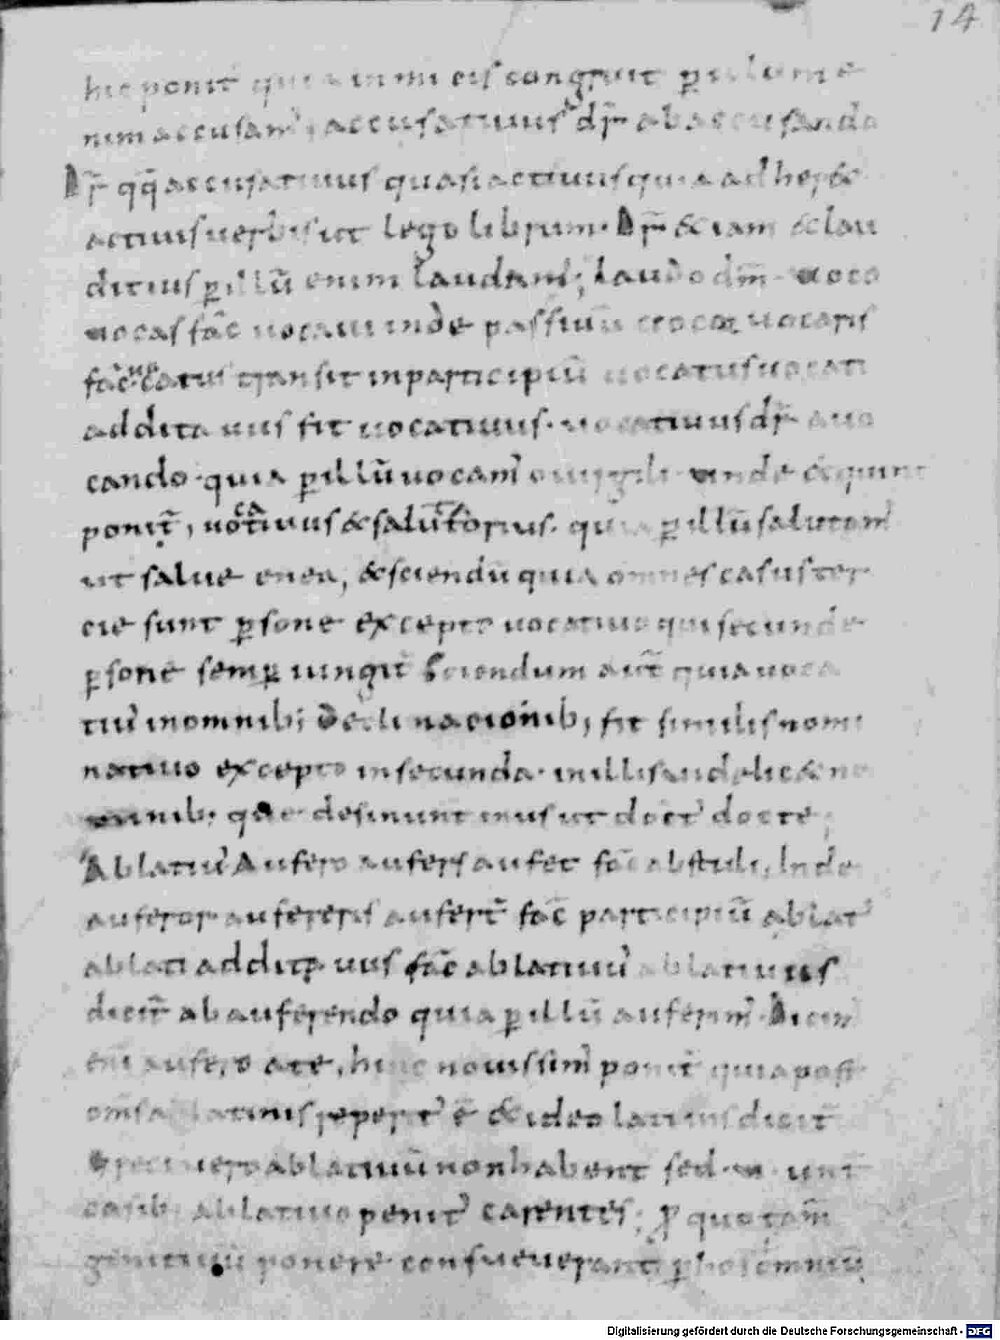 14
hic ponit̄ quia inimicis congruit ꝑ illum e
nim accusam᾽; accusatiuus dr̄ ab accusando
Dr̄ qq̄ accusatiuus quasi actiuus quia adheret
actiuis uerbis ut lego librum. Dr̄ & iam & lau
ditius ꝑ illū enim laudam᾽; laudo dm̄. uoco
uocas fac̄ uocaui inde passiuū uocor uocaris
fac̄ uocatus transit in participiū uocatus uocati
addita uus fit uocatiuus. uocatiuus dr̄ a uo
cando. quia ꝑ illū uocam᾽ o uirgili. unde & quint
ponit̄, uocatiuus & salutatorius. quia ꝑ illū salutam᾽
ut salue enea, & sciendū quia omnes casus ter
cie sunt ꝑsone excepto uocatiuo qui secunde
ꝑsone semꝑ iungit̄ Sciendum aut̄ quia uoca
tiu᾽ in omnib; declinacionib; fit similis nomi
natiuo excepto in secunda. in illis uidelic& no
minib; que desinunt in us ut doct᾽ docte;
Ablatiu᾽ Aufero aufers aufert fac̄ abstuli, Inde
auferor aufereris aufert̄ fac̄ participiū ablat᾽
ablati addita uus fac̄ ablatiuu᾽ ablatiuus
dicit̄ ab auferendo quia ꝑ illū auferim᾽. Dicim᾽
eni aufero a te, hinc nouissim᾽ ponit̄ quia post
oms̄ a latinis repert᾽ ē & ideo latinus dicit̄
Greci uero ablatiuū non habent sed unt̄
casib; ablatiuo penit᾽ carentes; ꝓ quo tam̄
genitiuū ponere consueuerant ꝑ hos omniū
Digitalisierung gefördert durch die Deutsche Forschungsgemeinschaft - DFG